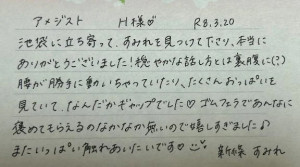 アメジスト　H様♡　R8.3.20
池袋に立ち寄って、すみれを見つけて下さり、本当に
ありがとうございました!穏やかな話し方とは裏腹に(?)
腰が勝手に動いちゃっていたり、たくさんおっぱいを
見ていて、なんだかギャップでした♡ゴムフェラであんなに
褒めてもらえるのなかなか無いので嬉しすぎました♪
またいっぱい触れあいたいです♡
新條 すみれ